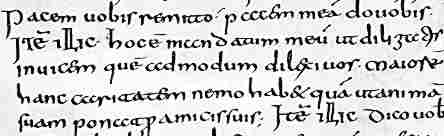 Pacem uobis remitto· pacem meā do uobis·
Itē illic· hoc ē mandatum meū ut diligatis
inuicem quē admodum dilexi uos· maiorē
hanc caritatem nemo hab& quā ut animā
suam ponat p amicis suis· Itē illic Dico uob